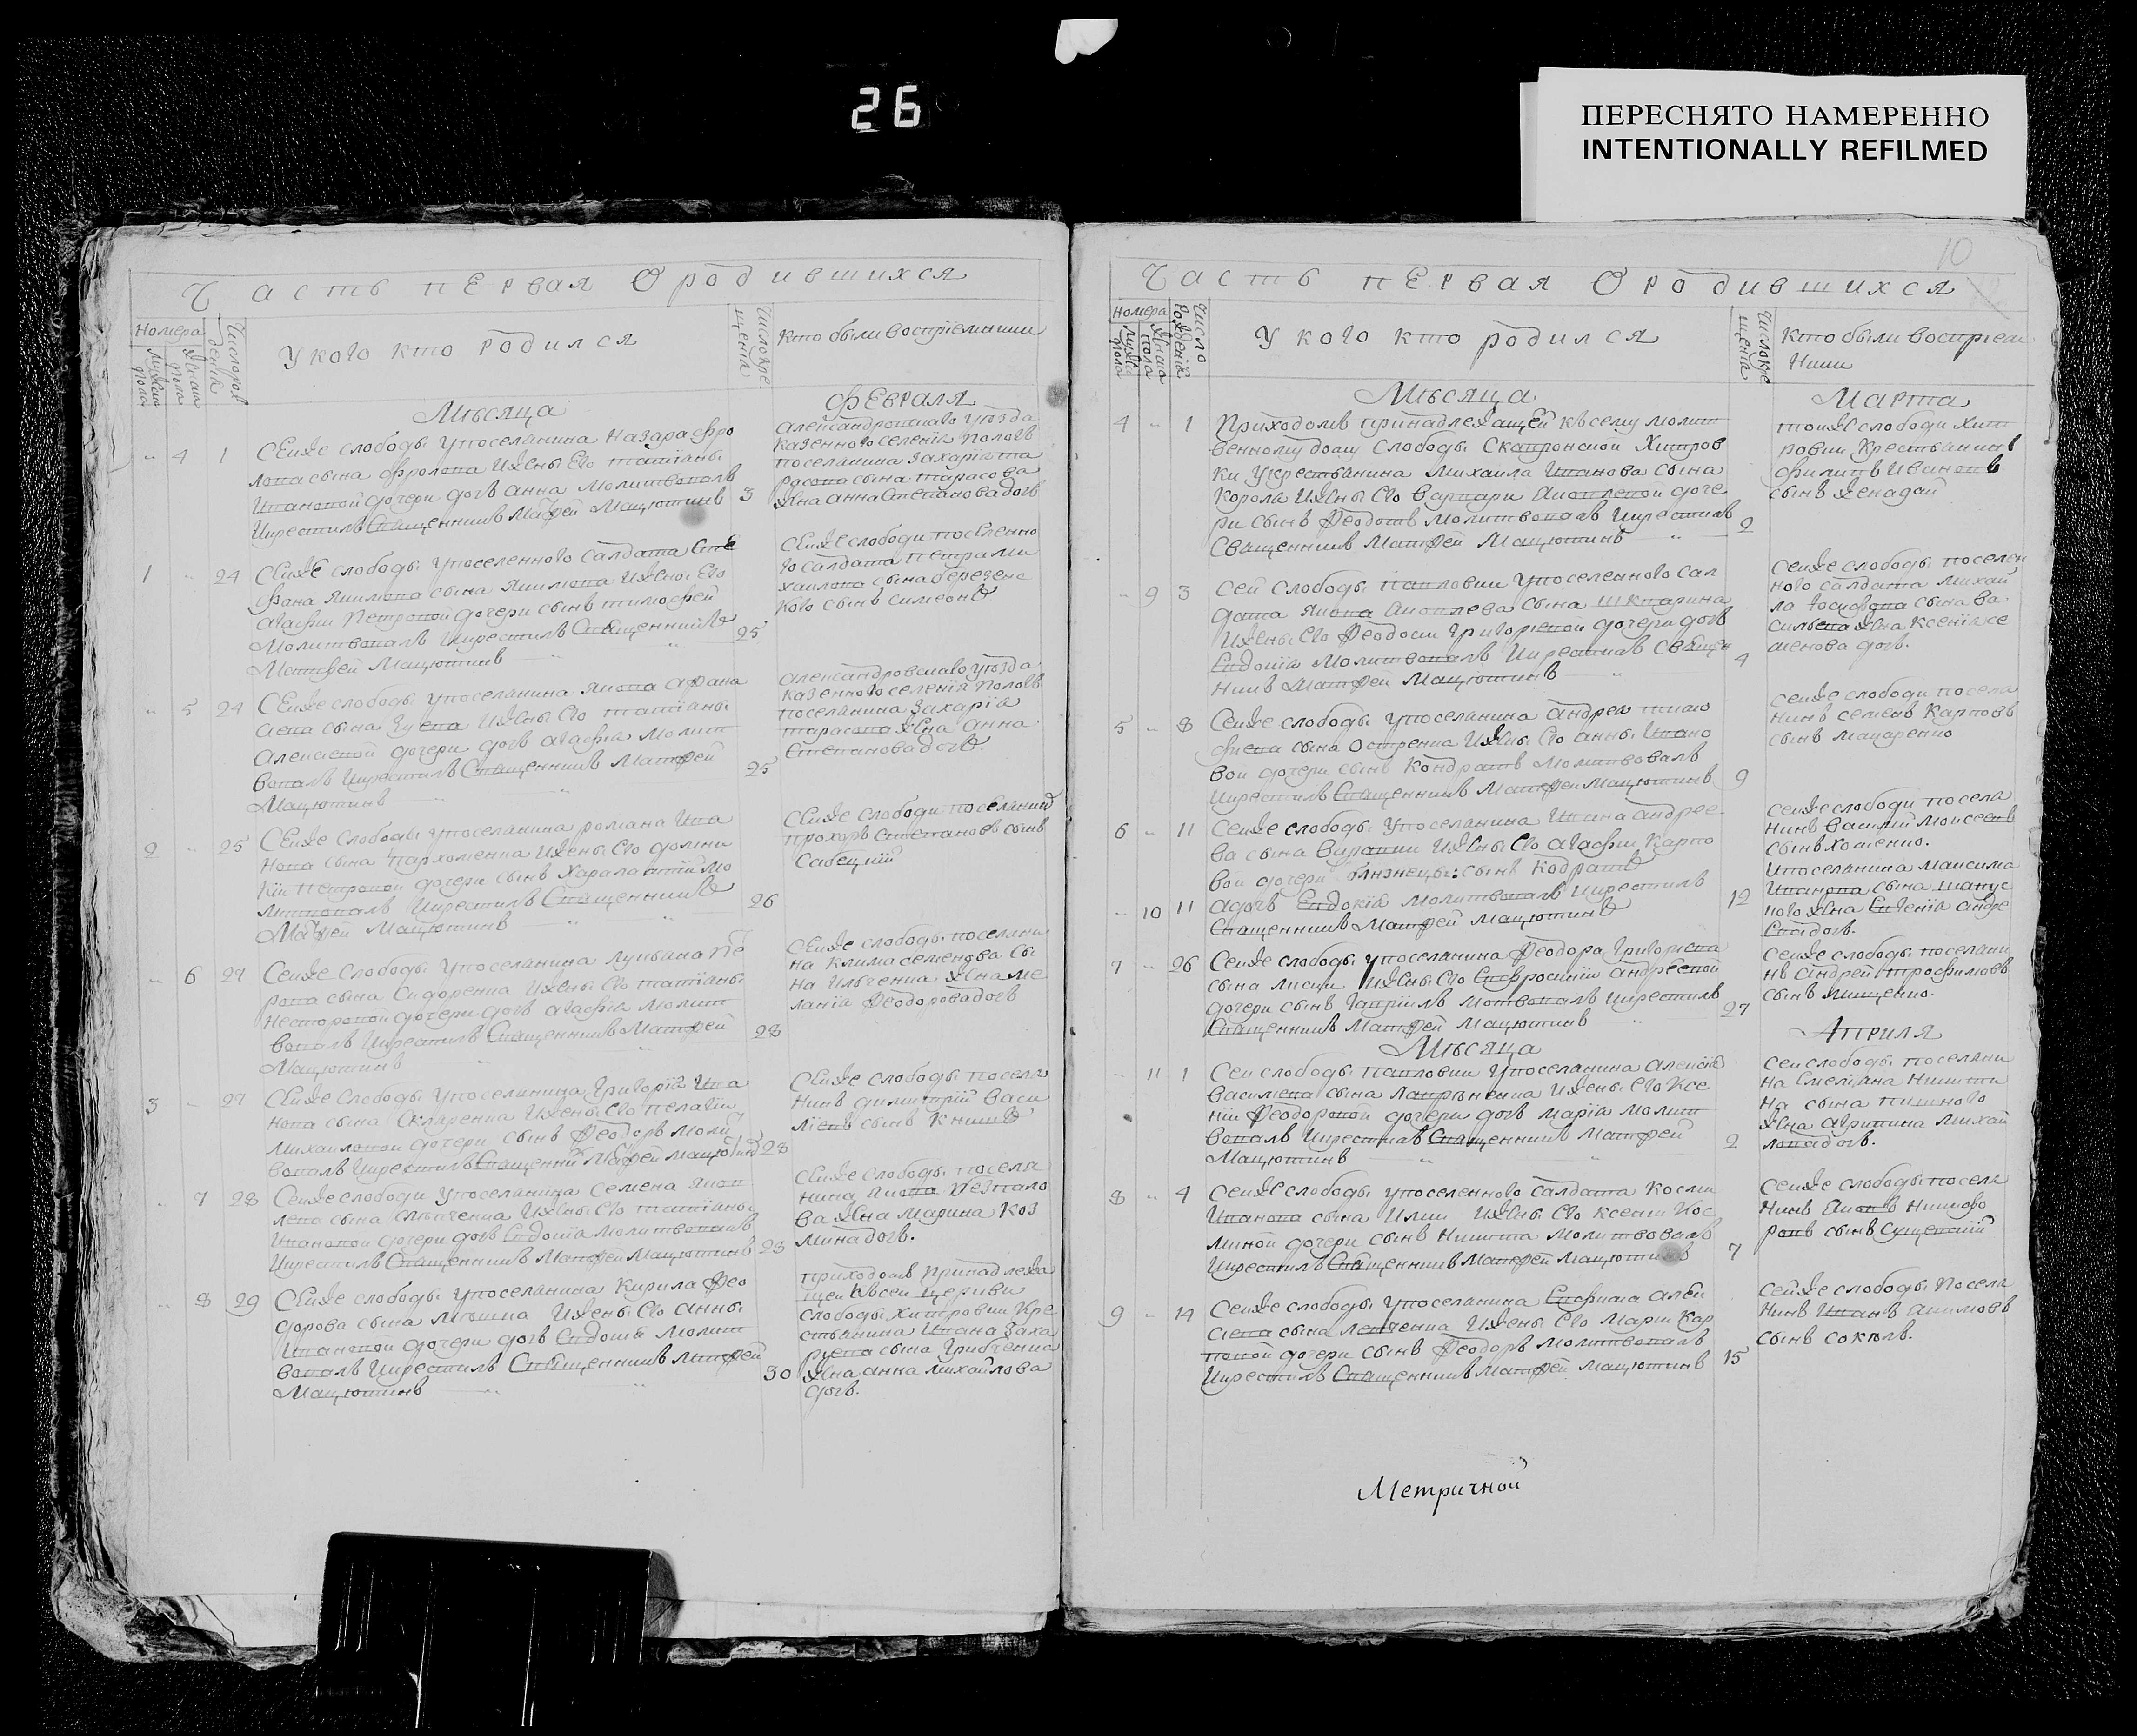 26
ПЕРЕСНЯТО НАМЕРЕННО
INTENTIONALLY REFILMED
Часть первая О родившихся
Номера
У кого кто родился
Кто были восприемники
Мѣсяца
Февраля
4 1 Сеиже слободы у поселанина Назара Фро
лова сына Фролова и жены его татіаны
Ивановой дочери дочь анна Молитвовалъ
и крестилъ Священникъ Матфей Мацютинъ
3
александровскаго уѣзда
казенного селенія Пологъ
поселанина Захарія та
расова сына тарасова
жена анна Степанова дочь
1 24 Сеиже слободы у поселенного салдата
сына якимова и жены его
агафіи Петровой дочери сынъ тимофей
Молитвовалъ и крестилъ Священникъ
Матфей Мацютинъ
25
Сеиже слободи поселенно
го салдата Петра ми
хаилова сына березенс
кого сынъ симеонъ
5 24 Сеиже слободы у поселанина якова афана
сіева сына Зуева и жены его татіаны
алексіевой дочери дочь агафіа Молит
вовалъ и крестилъ Священникъ Матфей
Мацютинъ
25
александровскаго уѣзда
казенного селенія Пологъ
поселанина Захарія
тарасова жена анна
Степанова дочь.
2 25 Сеиже слободы у поселанина романа Ива
нова сына Пархоменка и жены его домни
кіи Петровой дочери сынъ Харалампій мо
литвовалъ и крестилъ Священникъ
Матфей Мацютинъ
26
Сеиже слободи поселанинъ
прохоръ Степановъ сынъ
Сабецкій
6 27 Сеиже слободы у поселанина лукьана Пе
рова сына Сидоренка и жены его татіаны
Несторовой дочери дочь агафіа молит
вовалъ и крестилъ Священникъ Матфей
Мацютинъ
28
Сеиже слободы поселани
на клима семенова сы
на Ильченка жена ме
ланіа Феодорова дочь
3 27 Сеиже слободы у поселанина Григорія Ива
нова сына Скларенка и жены его пелагіи
михаиловой дочери сынъ Феодоръ моли
вовалъ и крестилъ Священникъ Матфей Мацютинъ
28
Сеиже слободы посела
нинъ димитрій Васи
ліевъ сынъ Книшъ
7 28 Сеиже слободи у поселанина Семена яков
лева сына и жены его татіаны
Ивановой дочери дочь Евдокіа молитвовалъ
и крестилъ Священникъ Матфей Мацютинъ
Сеиже слободы поселя
нина якова
ва жена Марина Коз
мина дочь.
8 29 Сеиже слободы у поселанина Кирила Фео
дорова сына и жены его анны
Ивановой дочери дочь Евдокіа молит
вовалъ и крестилъ Священникъ Матфей
Мацютинъ
30
приходомъ принадлежа
щей къ сей церкви
слободы Хитровки кре
стьянина Ивана Заха
ріева сына Грибченка
жена анна михайлова
дочь.
10
Часть первая О родившихся
Номера
Число рожденія
У кого кто родился
Кто были восприем
ники
Мѣсяца
Марта
4 1 Приходомъ принадлежащей къ сему молит
венному дому слободы Скатронской Хитров
ки у крестьянина михаила Иванова сына
Корола и жены его Варвари яковлевой доче
ри сынъ Феодотъ молитвовалъ и крестилъ
Священникъ Матфей Мацютинъ
2
тоиже слободи Хит
ровки крестьянинъ
филипъ Ивановъ
сынъ женадай
9 3 Сей слободы Павловки у поселенного сал
дата якова яковлева сына шкварина
и жены его Феодосіи Григоріевой дочери дочь
Евдокіа молитвовалъ и крестилъ Священ
никъ Матфей Мацютинъ
4
Сеиже слободы поселен
ного салдата михай
ла Іосифова сына ва
сильева жена ксеніа се
менова дочь.
5 8 Сеиже слободы у поселанина андрея тимо
фіева сына Остренка и жены его анны Ивано
вой дочери сынъ Кондратъ молитвовалъ
и крестилъ Священникъ Матфей Мацютинъ
9
Сеиже слободи посела
нинъ семенъ Карповъ
сынъ макаренко
6 11 Сеиже слободы у поселанина Ивана андрее
ва сына и жены его агафіи Карпо
вой дочери близнецы: сынъ Кодратъ
10 11 а дочь Евдокіа молитвовалъ и крестилъ
Священникъ Матфей Мацютинъ
12
Сеиже слободи посела
нинъ василій моисеевъ
сынъ хоменко.
и поселанина максима
Иванова сына
кого жена Евгеніа андре
ева дочь.
7 26 Сеиже слободы у поселанина Феодора Григоріева
сына лисици и жены его Евфросиніи андреевой
дочери сынъ Гавріилъ молитвовалъ и крестилъ
Священникъ Матфей Мацютинъ
27
Сеиже слободы поселани
нъ андрей трофимовъ
сынъ мищенко.
Мѣсяца
Априля
11 1 Сеи слободы Павловки у поселанина алексія
василіева сына лавріненка и жены его ксе
ніи Феодоровой дочери дочь маріа молит
вовалъ и крестилъ Священникъ Матфей
Мацютинъ
2
Сеи слободы поселани
на Емеліана Никити
на сына пишного
жена михай
лова дочь.
8 4 Сеиже слободы у поселенного салдата Косми
Иванова сына и жены его ксеніи Кос
миной дочери сынъ Никита молитвовалъ
и крестилъ Священникъ Матфей Мацютинъ
7
Сеиже слободы посела
нинъ яковъ Никифо
ровъ сынъ Сущевскій
9 14 Сеиже слободы у поселанина Евфима алек
сіева сына левченка и жены его Маріи Кар
повой дочери сынъ Феодоръ молитвовалъ
и крестилъ Священникъ Матфей Мацютинъ
15
Сеиже слободы посела
нинъ Иванъ акимовъ
сынъ соколъ.
Метричной